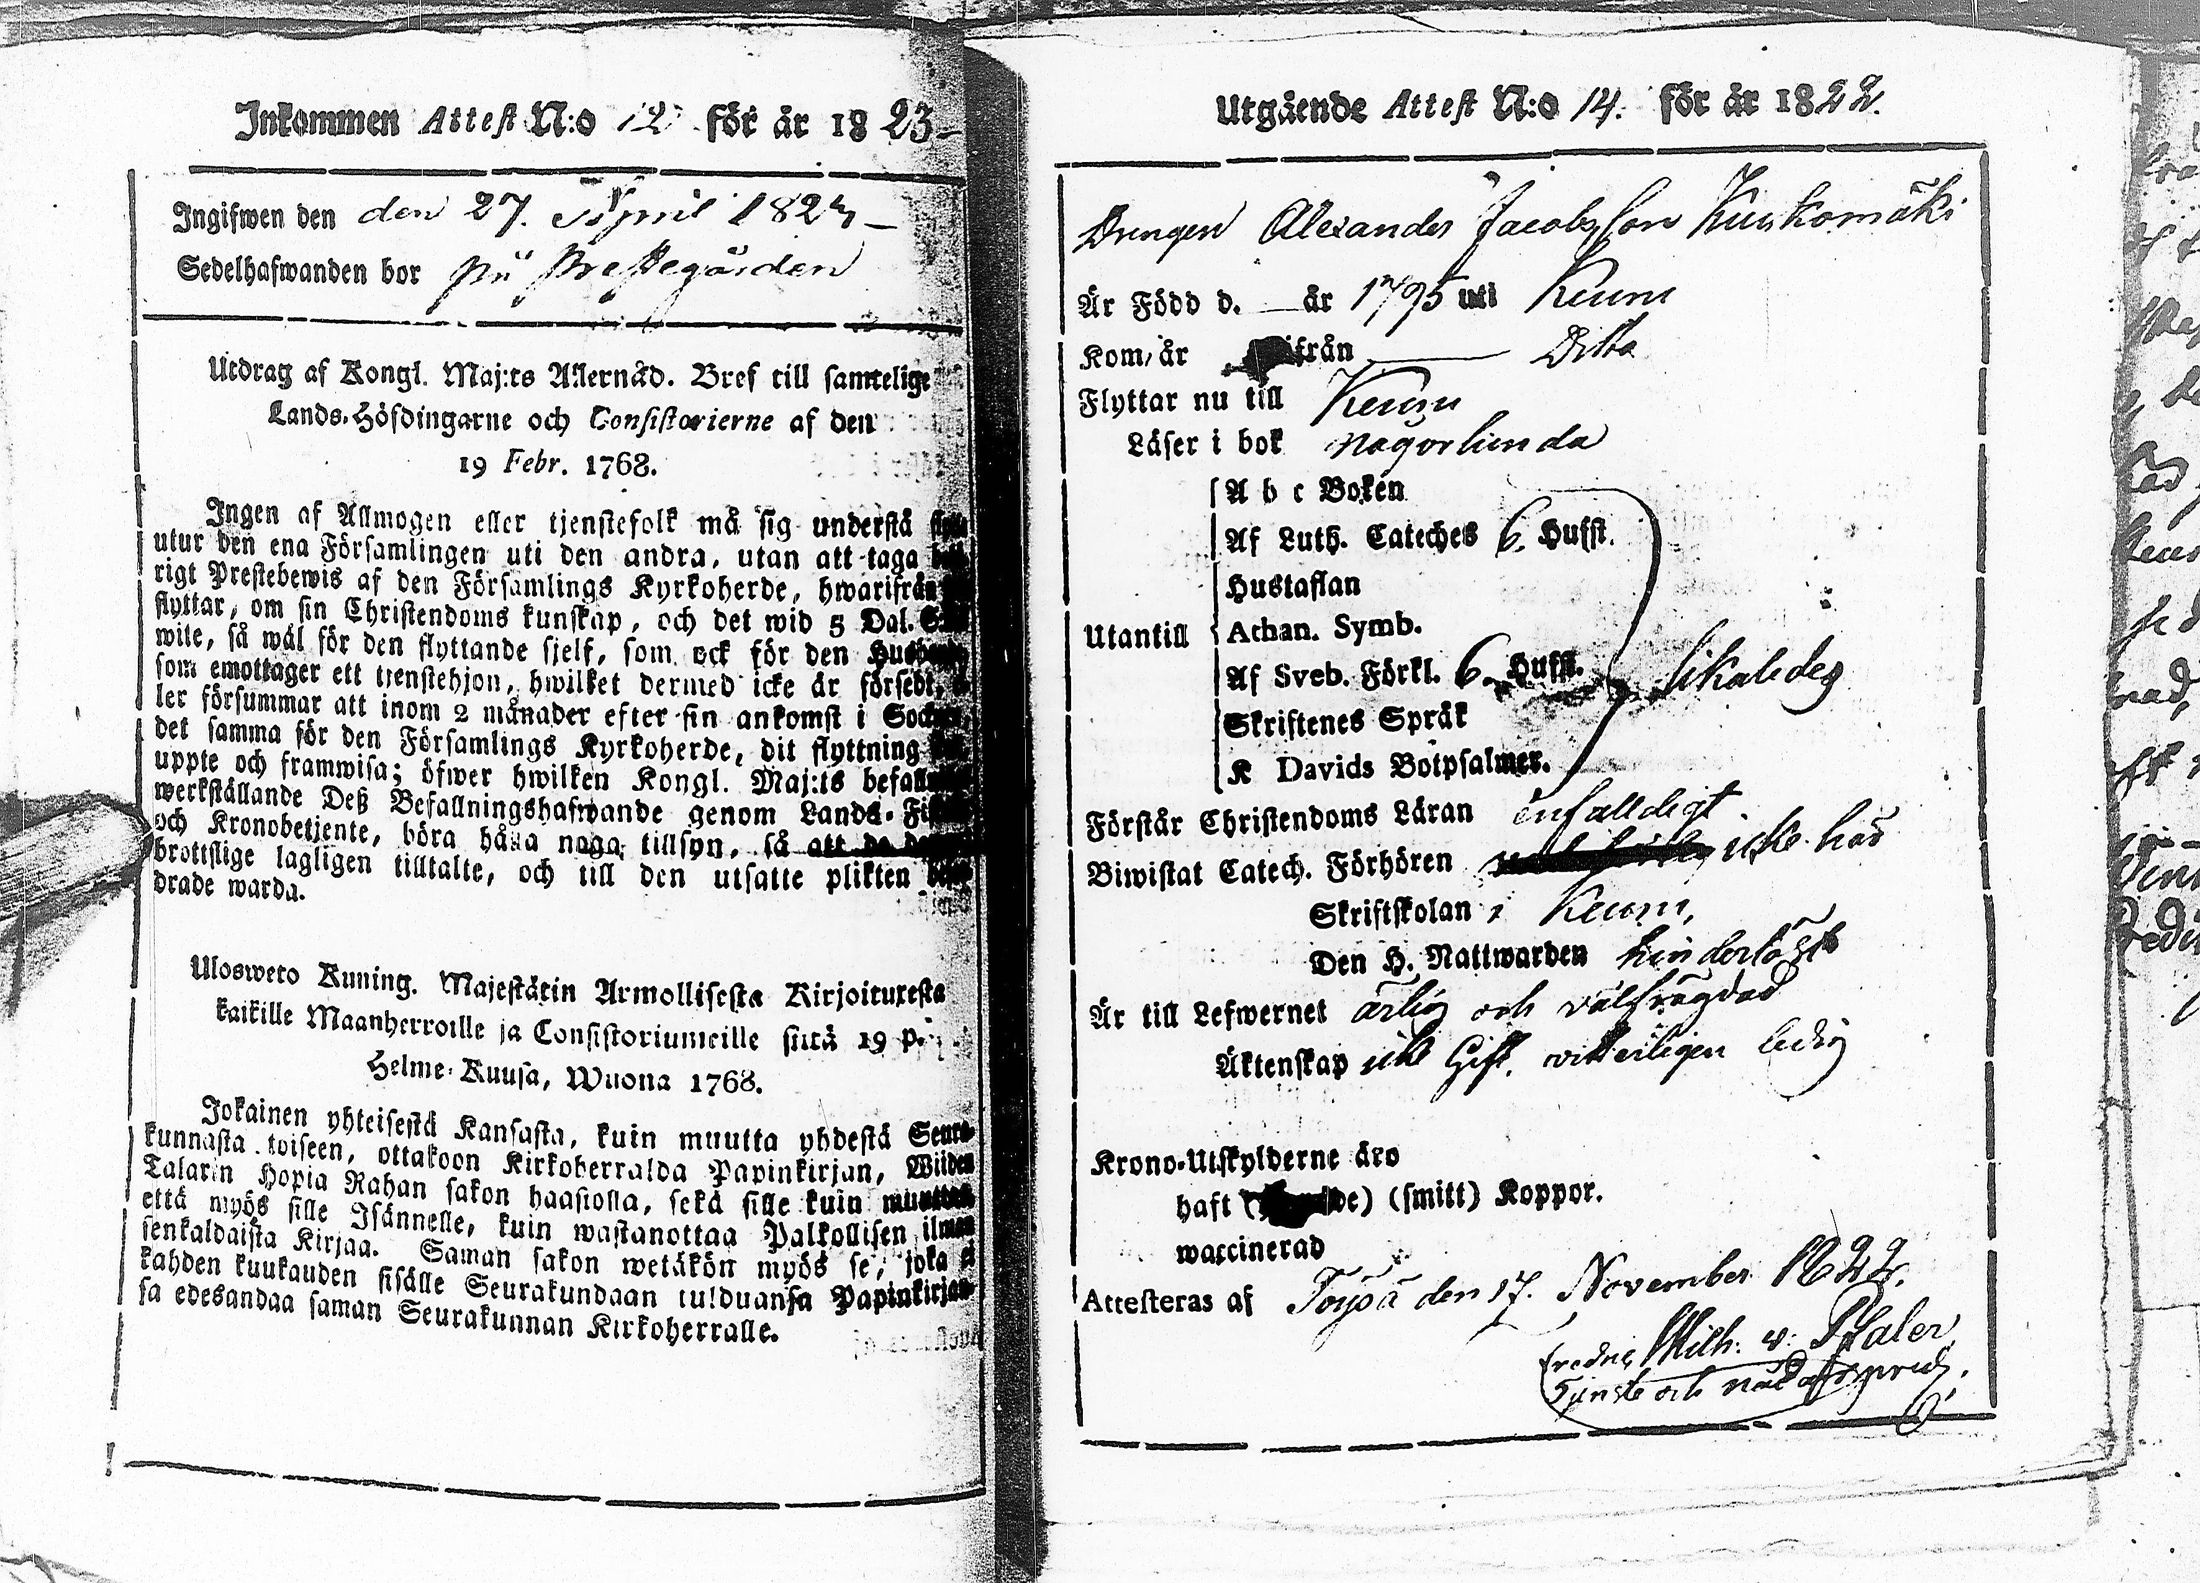 Inkommen Attest N:o 12 för år 1823
Ingifwen den den 27. April 1823
Sedelhafwanden bor på Prestegården
Utdrag af Kongl. Maj:ts Allernåd. Bref till samtelige
Lands-Höfdingarne och Consistorierne af den
19 Febr. 1768.
Ingen af Allmogen eller tjenstefolk må sig understå
utur den ena Församlingen uti den andra, utan att taga
rigt Prestebewis af den Församlings Kyrkoherde, hwarifrån
flyttar, om sin Christendoms kunskap, och det wid 5 Dal.
wite, så wäl för den flyttande sjelf, som ock för den
som emottager ett tjenstehjon, hwilket dermed icke är försedt,
ler försummar att inom 2 månader efter sin ankomst i
det samma för den Församlings Kyrkoherde, dit flyttning
uppte och framwisa; öfwer hwilken Kongl. Maj:ts
werkställande Deß Befallningshafwande genom Lands-
och Kronobetjente, böra hålla noga tillsyn, så att de
brottslige lagligen tilltalte, och till den utsatte plikten
drade warda.
Ulosweto Kuning. Majestätin Armollisesta Kirjoituxesta
kaikille Maanherroille ja Consistoriumeille siitä 19 p.
Helme-Kuusa, Wuona 1768.
Jokainen yhteisestä Kansasta, kuin muutta yhdestä Seura-
kunnasta toiseen, ottakoon Kirkoherralda Papinkirjan, Wiiden
Talarin Hopia Rahan sakon haastolla, sekä sille kuin muuttaa
että myös sille Isännelle, kuin wastanottaa Palkollisen ilman
senkaldaista Kirjaa. Saman sakon wetäkön myös se, joka ei
kahden kuukauden sisälle Seurakundaan tulduansa Papinkirjan-
sa edesandaa saman Seurakunnan Kirkoherralle.
Utgående Attest N:o 14. för år 1822.
Drengen Alexander Jacobsson Kuukomäki
Är Född d. — år 1795 uti Keuru
Kom, år ifrån — Ditto
Flyttar nu till Keuru
Läser i bok någorlunda
A b c Boken
Af Luth. Cateches 6. Hufst.
Hustaflan
Utantill Athan. Symb.
Af Sveb. Förkl. 6. Hufst. likaledes
Skriftenes Språk
K Davids Botpsalmer.
Förstår Christendoms Läran enfalldigt.
Biwistat Catech. Förhören icke här
Skriftskolan i Keuru,
Den H. Nattwarden hinderlöst
Är till Lefwernet ärlig och välfrägdad
Äktenskap icke Gift, witterligen ledig
Krono-Utskylderne äro
haft (smitt) Koppor.
waccinerad
Attesteras af Töysä den 17. November 1822.
Wilh. v. Pfaler